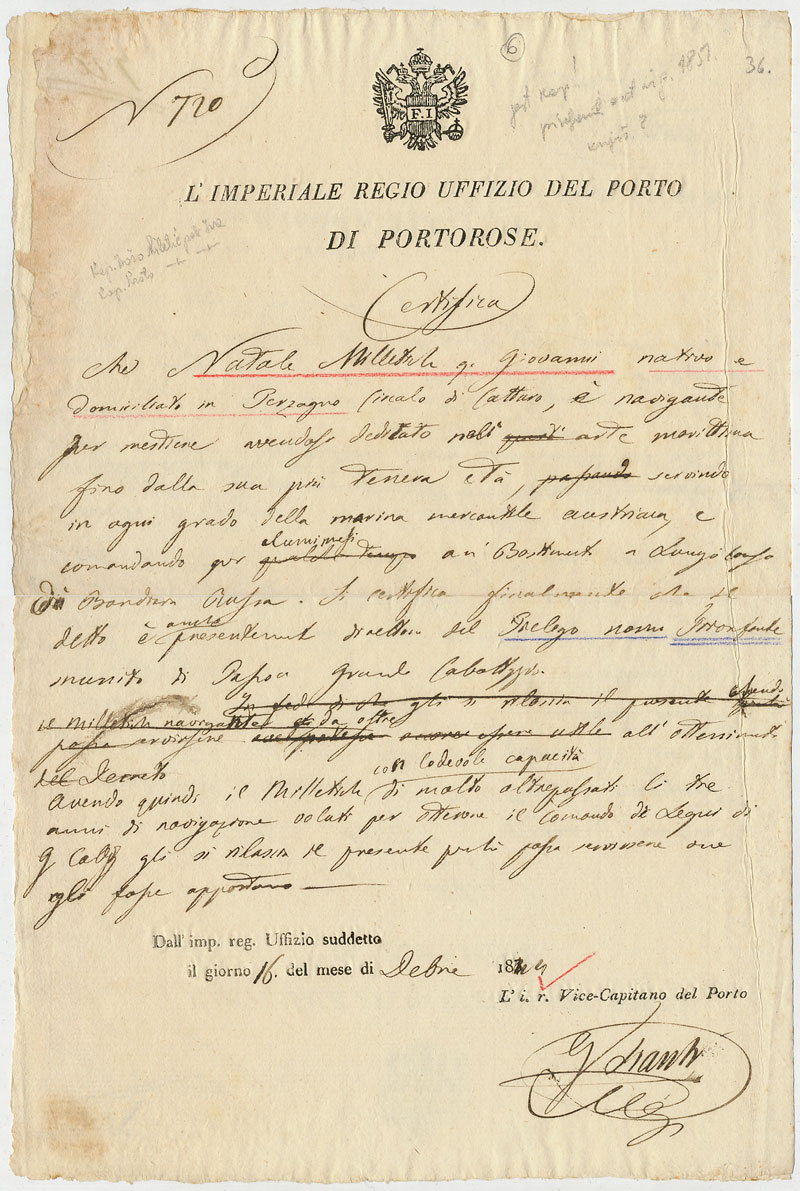 N 720
6
36.
F.I
L'IMPERIALE REGIO UFFIZIO DEL PORTO
DI PORTOROSE.
Certifica
che Natale Millettich q. Giovanni nativo e
domiciliato in Perzagno Circolo di Cattaro, è navigante
per mestiere avendosi dedicato nell' arte marittima
fino dalla sua più tenera età, passando servindo
in ogni grado della marina mercantile austriaca, e
comandando per alcuni mesi qualche tempo un Bastiment a Lungo corso
di Bandiera Russa. Si certifica finalmente che il
detto è ancora presentement direttore del Pielego nom
munito di Passa Grande Cabottaggio.
In fede di che gli si rilascia il presente
il Millettich
all' ottenimento
del Decreto
Avendo quindi il Millettich con lodevole capacità di molto oltrepassati li tre
anni di navigazione voluti per ottenere il comando di Legni di
G Cab gli si rilascia il presente perchè possa servirsene ove
gli fosse opportuno
Dall' imp. reg. Uffizio suddetto
il giorno 16. del mese di Debre 1844
L' i. r. Vice-Capitano del Porto